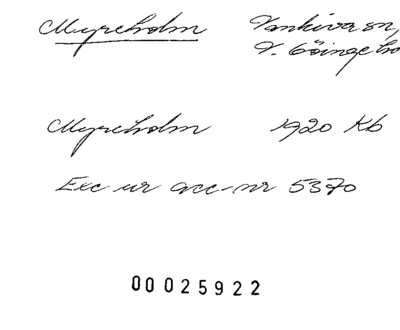 Myreholm Vankiva sn,
V. Göinge
Myreholm 1920 Kb
Exc ur acc-nr 5370
00025922